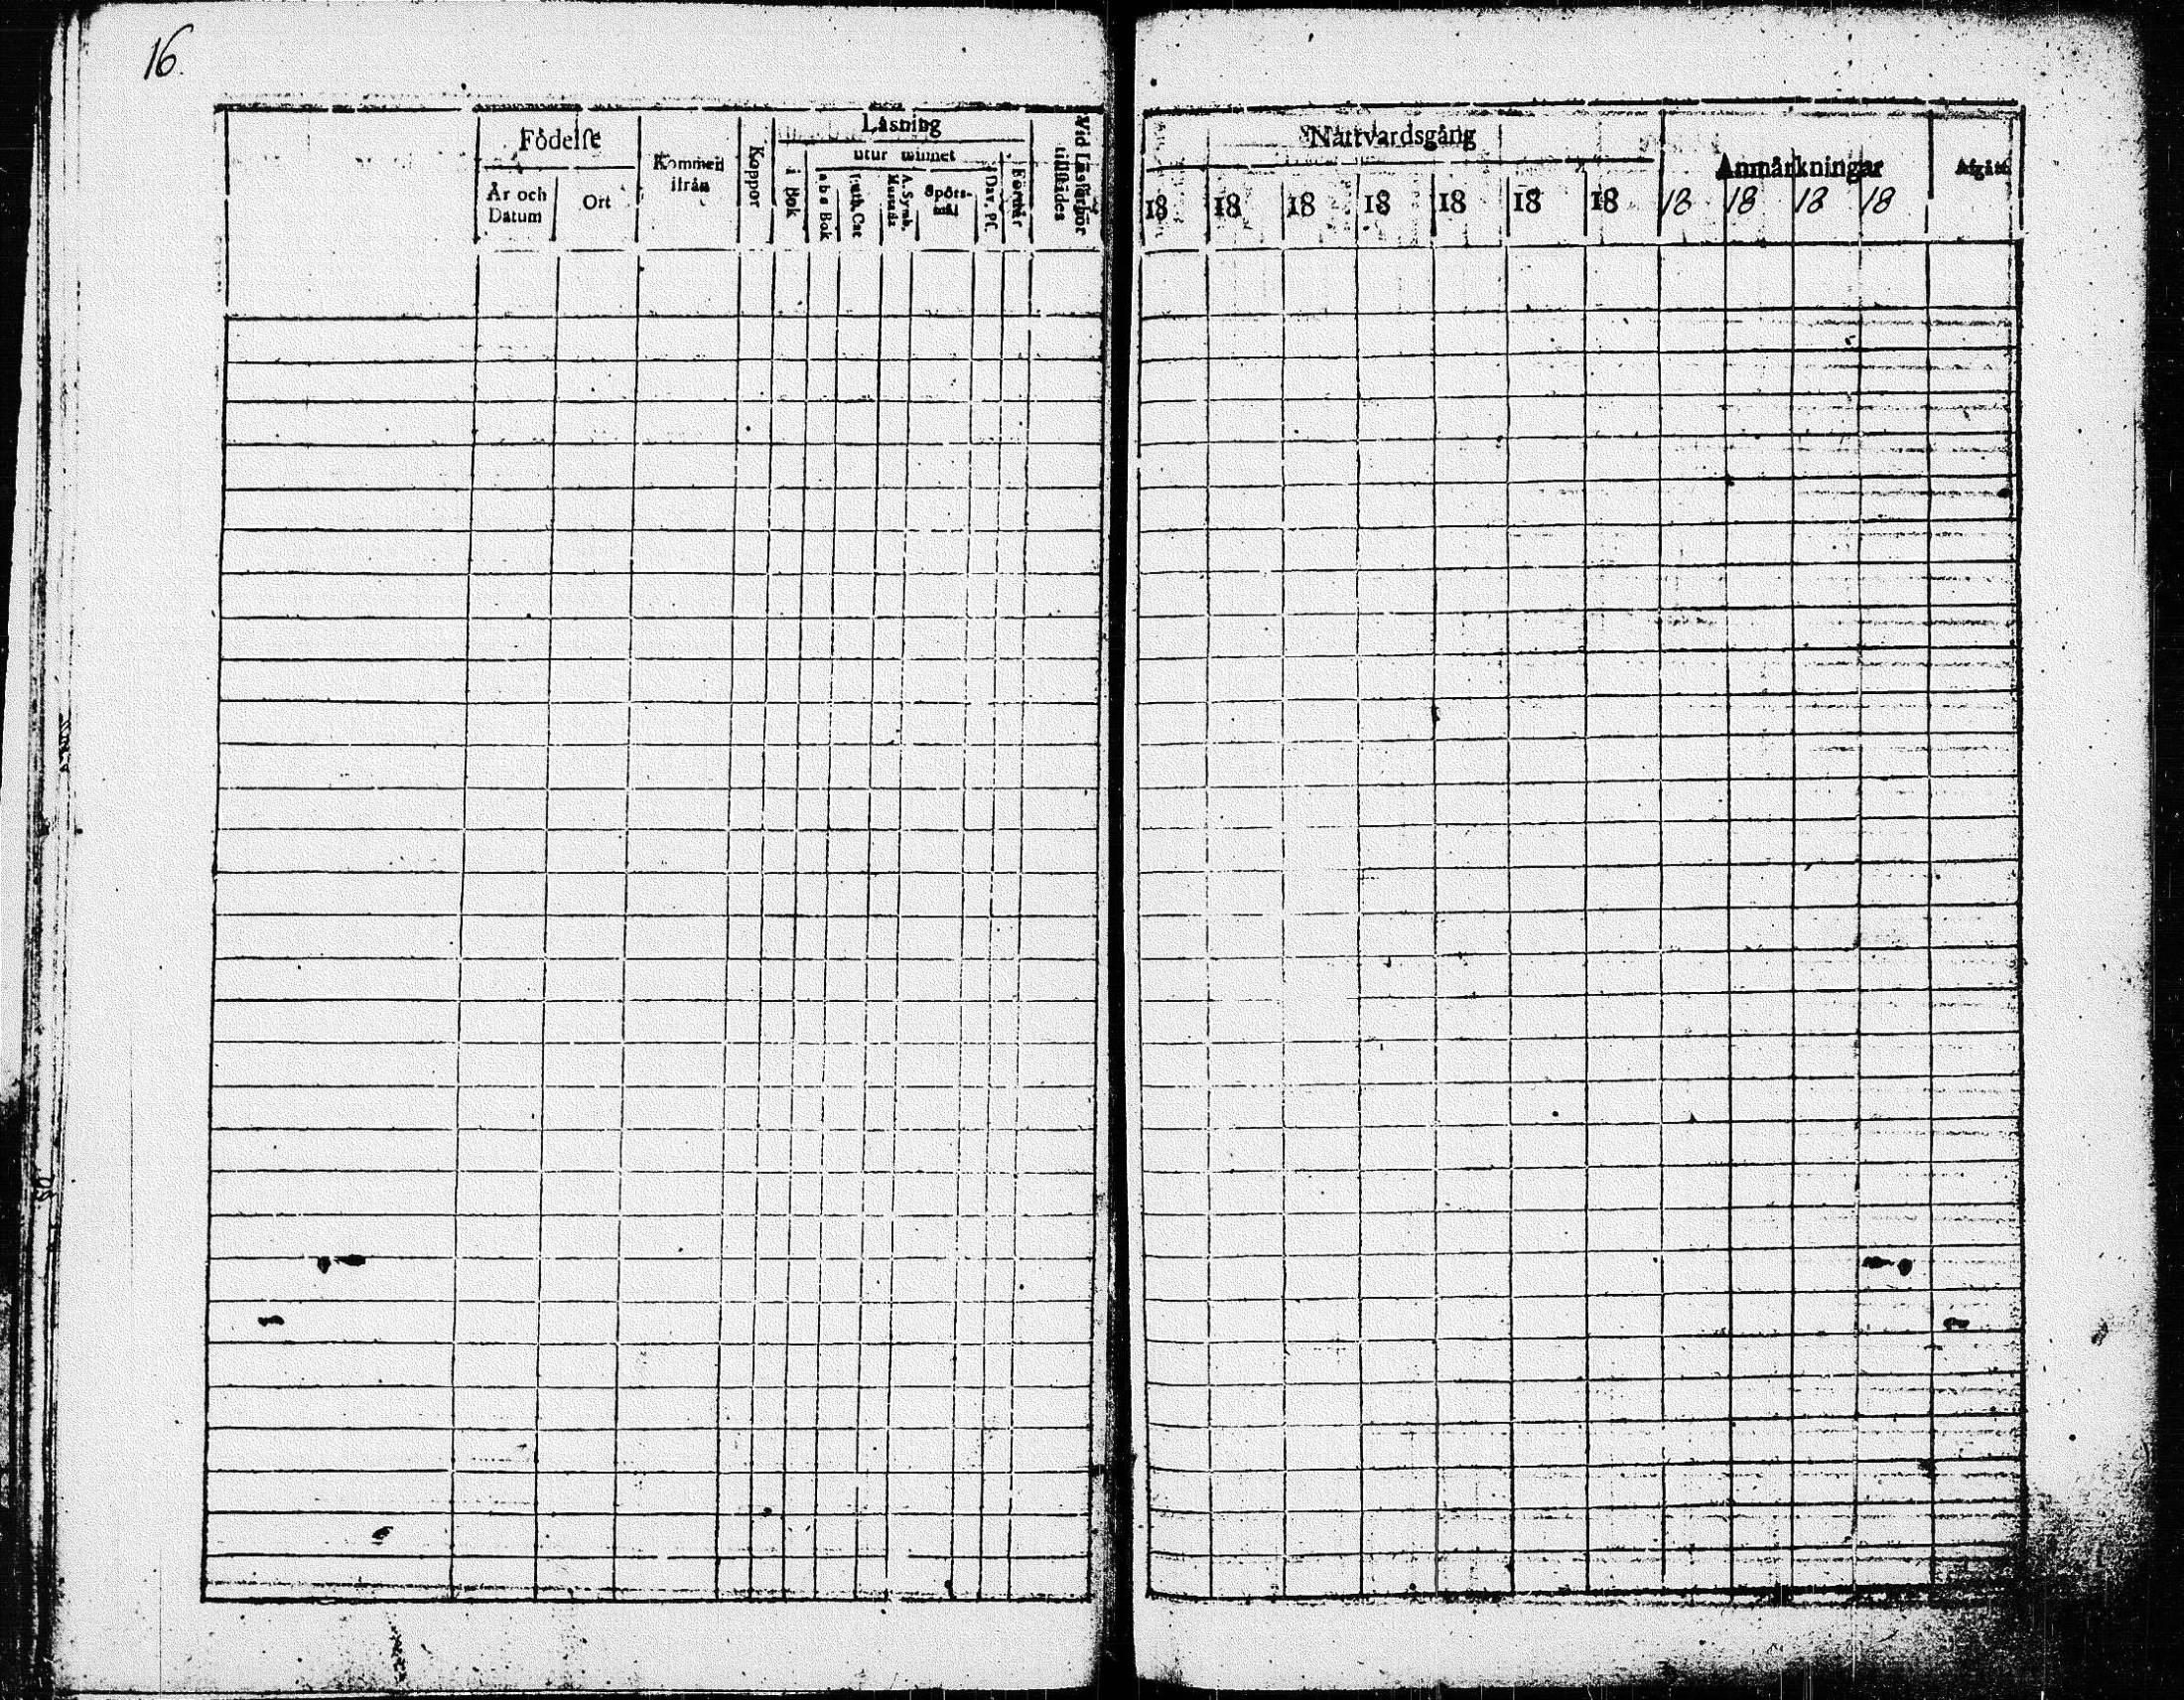 16.
Födelſe
År och Datum
Ort
Kommen ifrån
Koppor
Läsning
i Bok
utur minnet
a b c Bok
Luth. Cat
A. Symb.
Spörs-mål
Dav. Pſ.
Förſtår
Vid Läsförhör tillſtädes
Nattvardsgång
18 18 18 18 18 18 18
Anmärkningar
18 18 18 18
Afgått